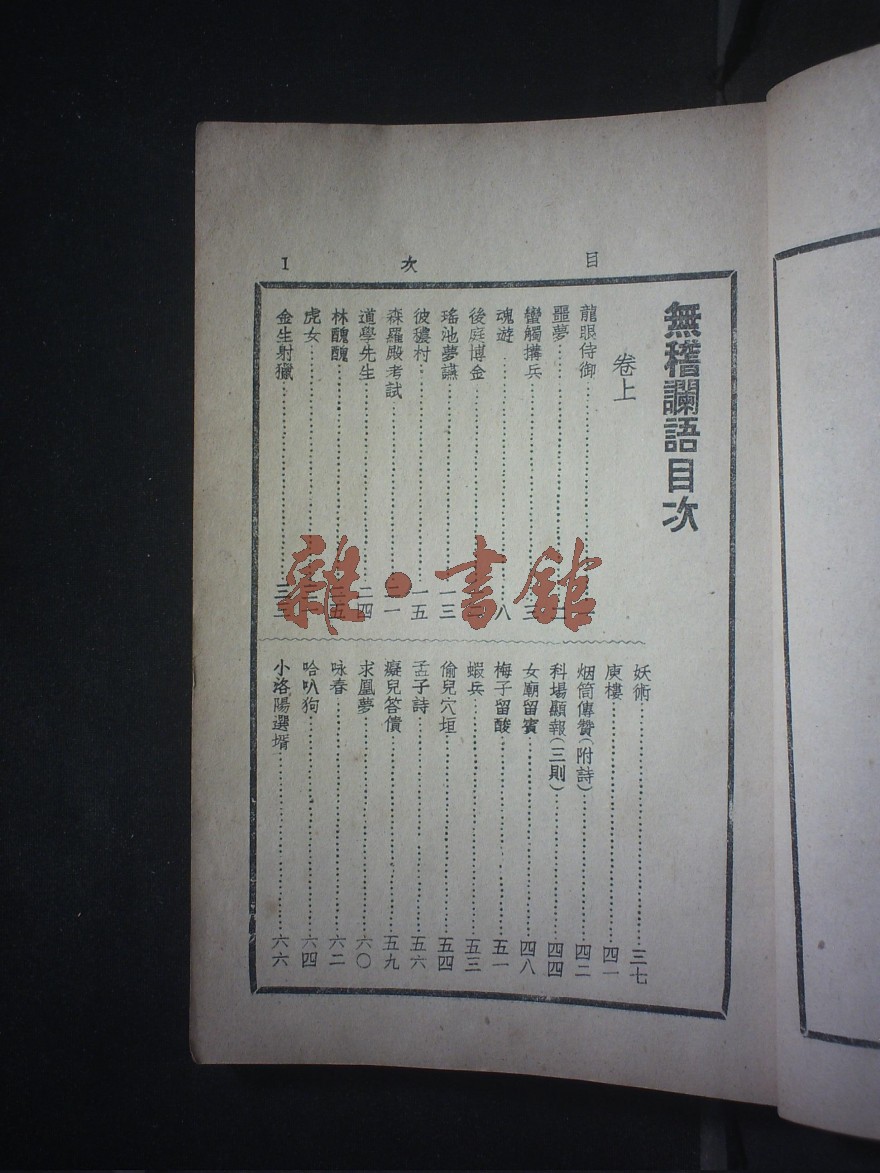 目次 1
無稽讕語目次
卷上
龍眼侍御
噩夢
蠻觸搆兵
魂遊 八
後庭博金
瑤池夢讌 一三
彼穠村 一五
森羅殿考試
道學先生 二四
林醜醜
虎女
金生射獵
妖術 三七
庾樓 四一
烟筒傳贊(附詩) 四二
科場顯報(三則) 四四
女廟留賓 四八
梅子留酸 五一
蝦兵 五三
偷兒穴垣 五四
孟子詩 五六
癡兒答債 五九
求凰夢 六〇
咏春 六二
哈叭狗 六四
小洛陽選壻 六六
雜·書館